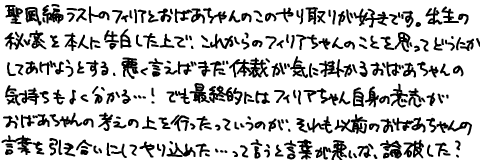 聖風編ラストのフィリアとおばあちゃんのこのやり取りが好きです。出生の
秘密を本人に告白した上で、これからのフィリアちゃんのことを思ってどうにか
してあげようとする、悪く言えばまだ体裁が気に掛かるおばあちゃんの
気持ちもよく分かる…!でも最終的にはフィリアちゃん自身の意志が
おばあちゃんの考えの上を行ったっていうのが、それも以前のおばあちゃんの
言葉を引き合いにしてやり込めた…って言うと言葉が悪いな、論破した?